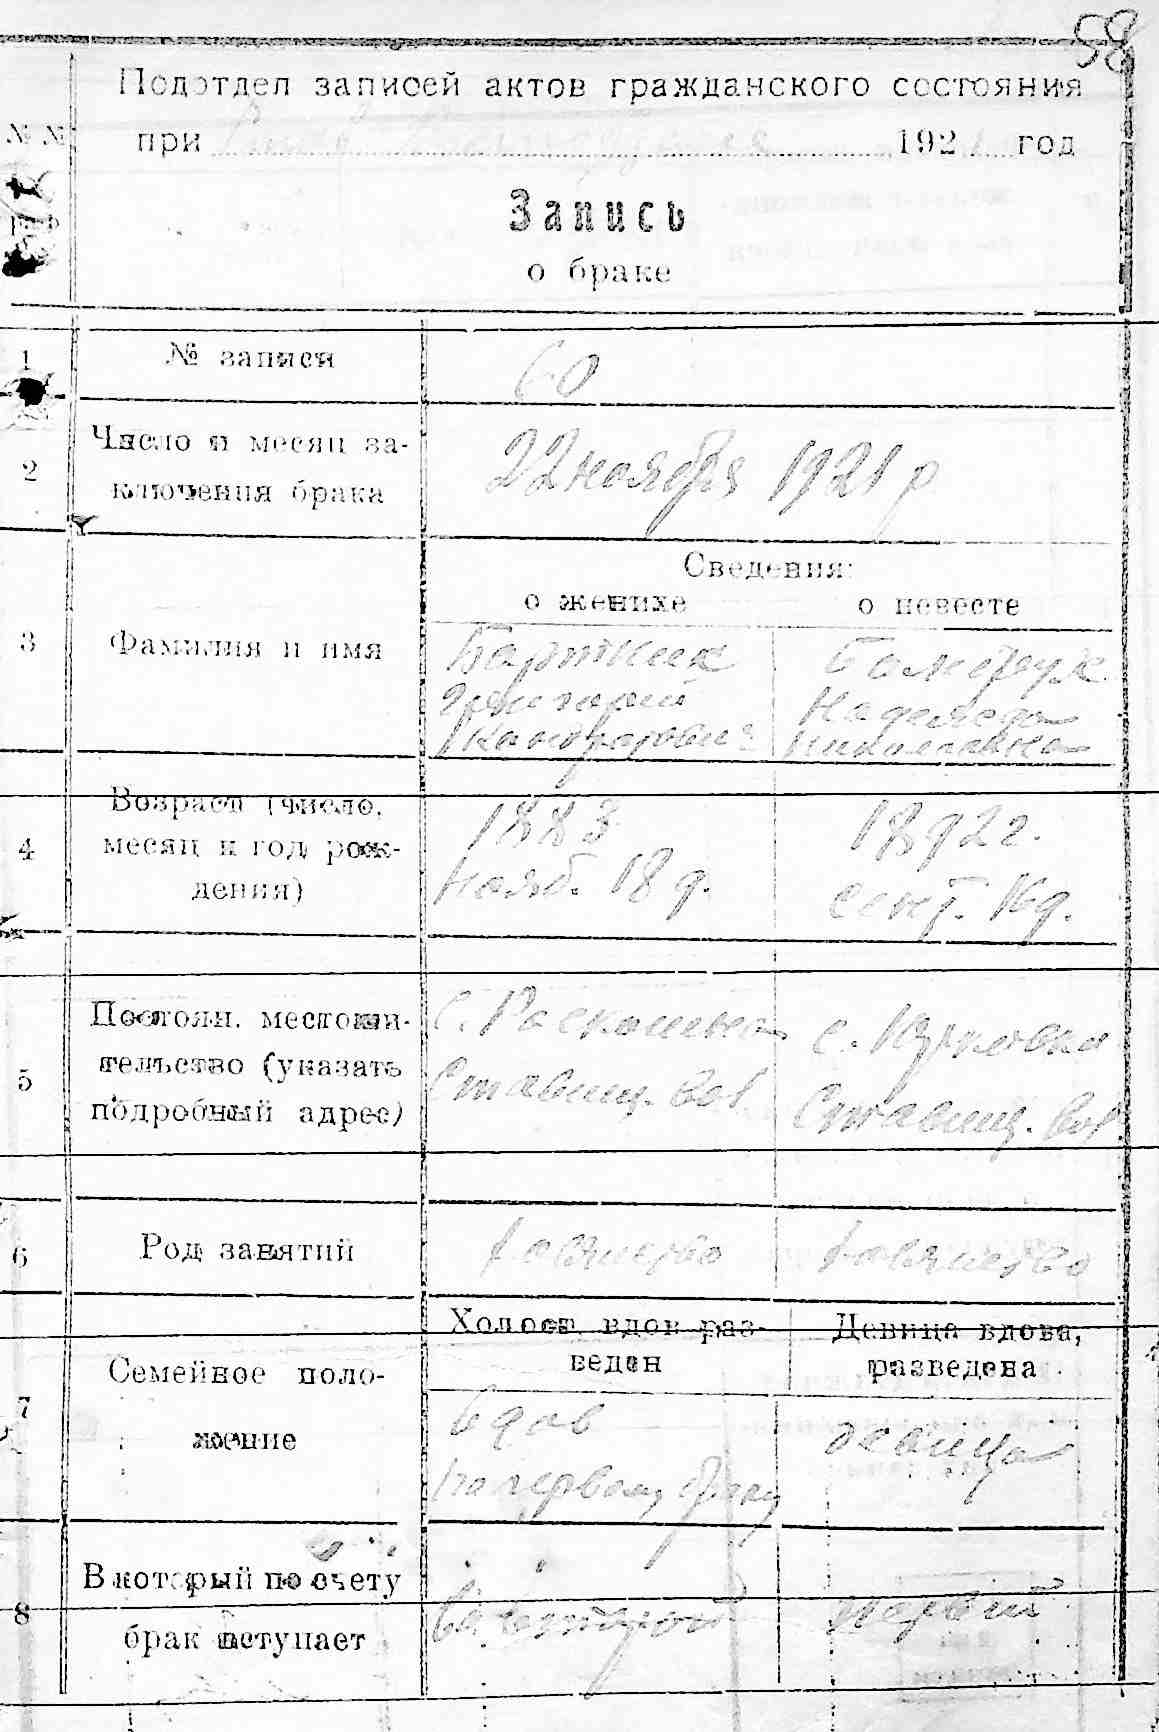 98
Подотдел записей актов гражданского состояния
№ №
при 1921 год
Запись
о браке
1 № записи 60
2 Число и месяц за-
ключения брака 22 ноября 1921 р
Сведения:
о женихе о невесте
3 Фамилия и имя
Григорий Надежда
Николаевна
4 Возраст (число, 1883 1892 г.
месяц и год рож- нояб. 18 д. сент. 16 д.
дения)
5 Постоян. местожи- с. с.
тельство (указать Ставищ. вол Ставищ. вол
подробный адрес)
6 Род занятий
Холост вдов раз- Девица вдова,
веден разведена
7 Семейное поло- вдов девица
жение по первому браку
8 В который по счету
брак вступает во второй первый